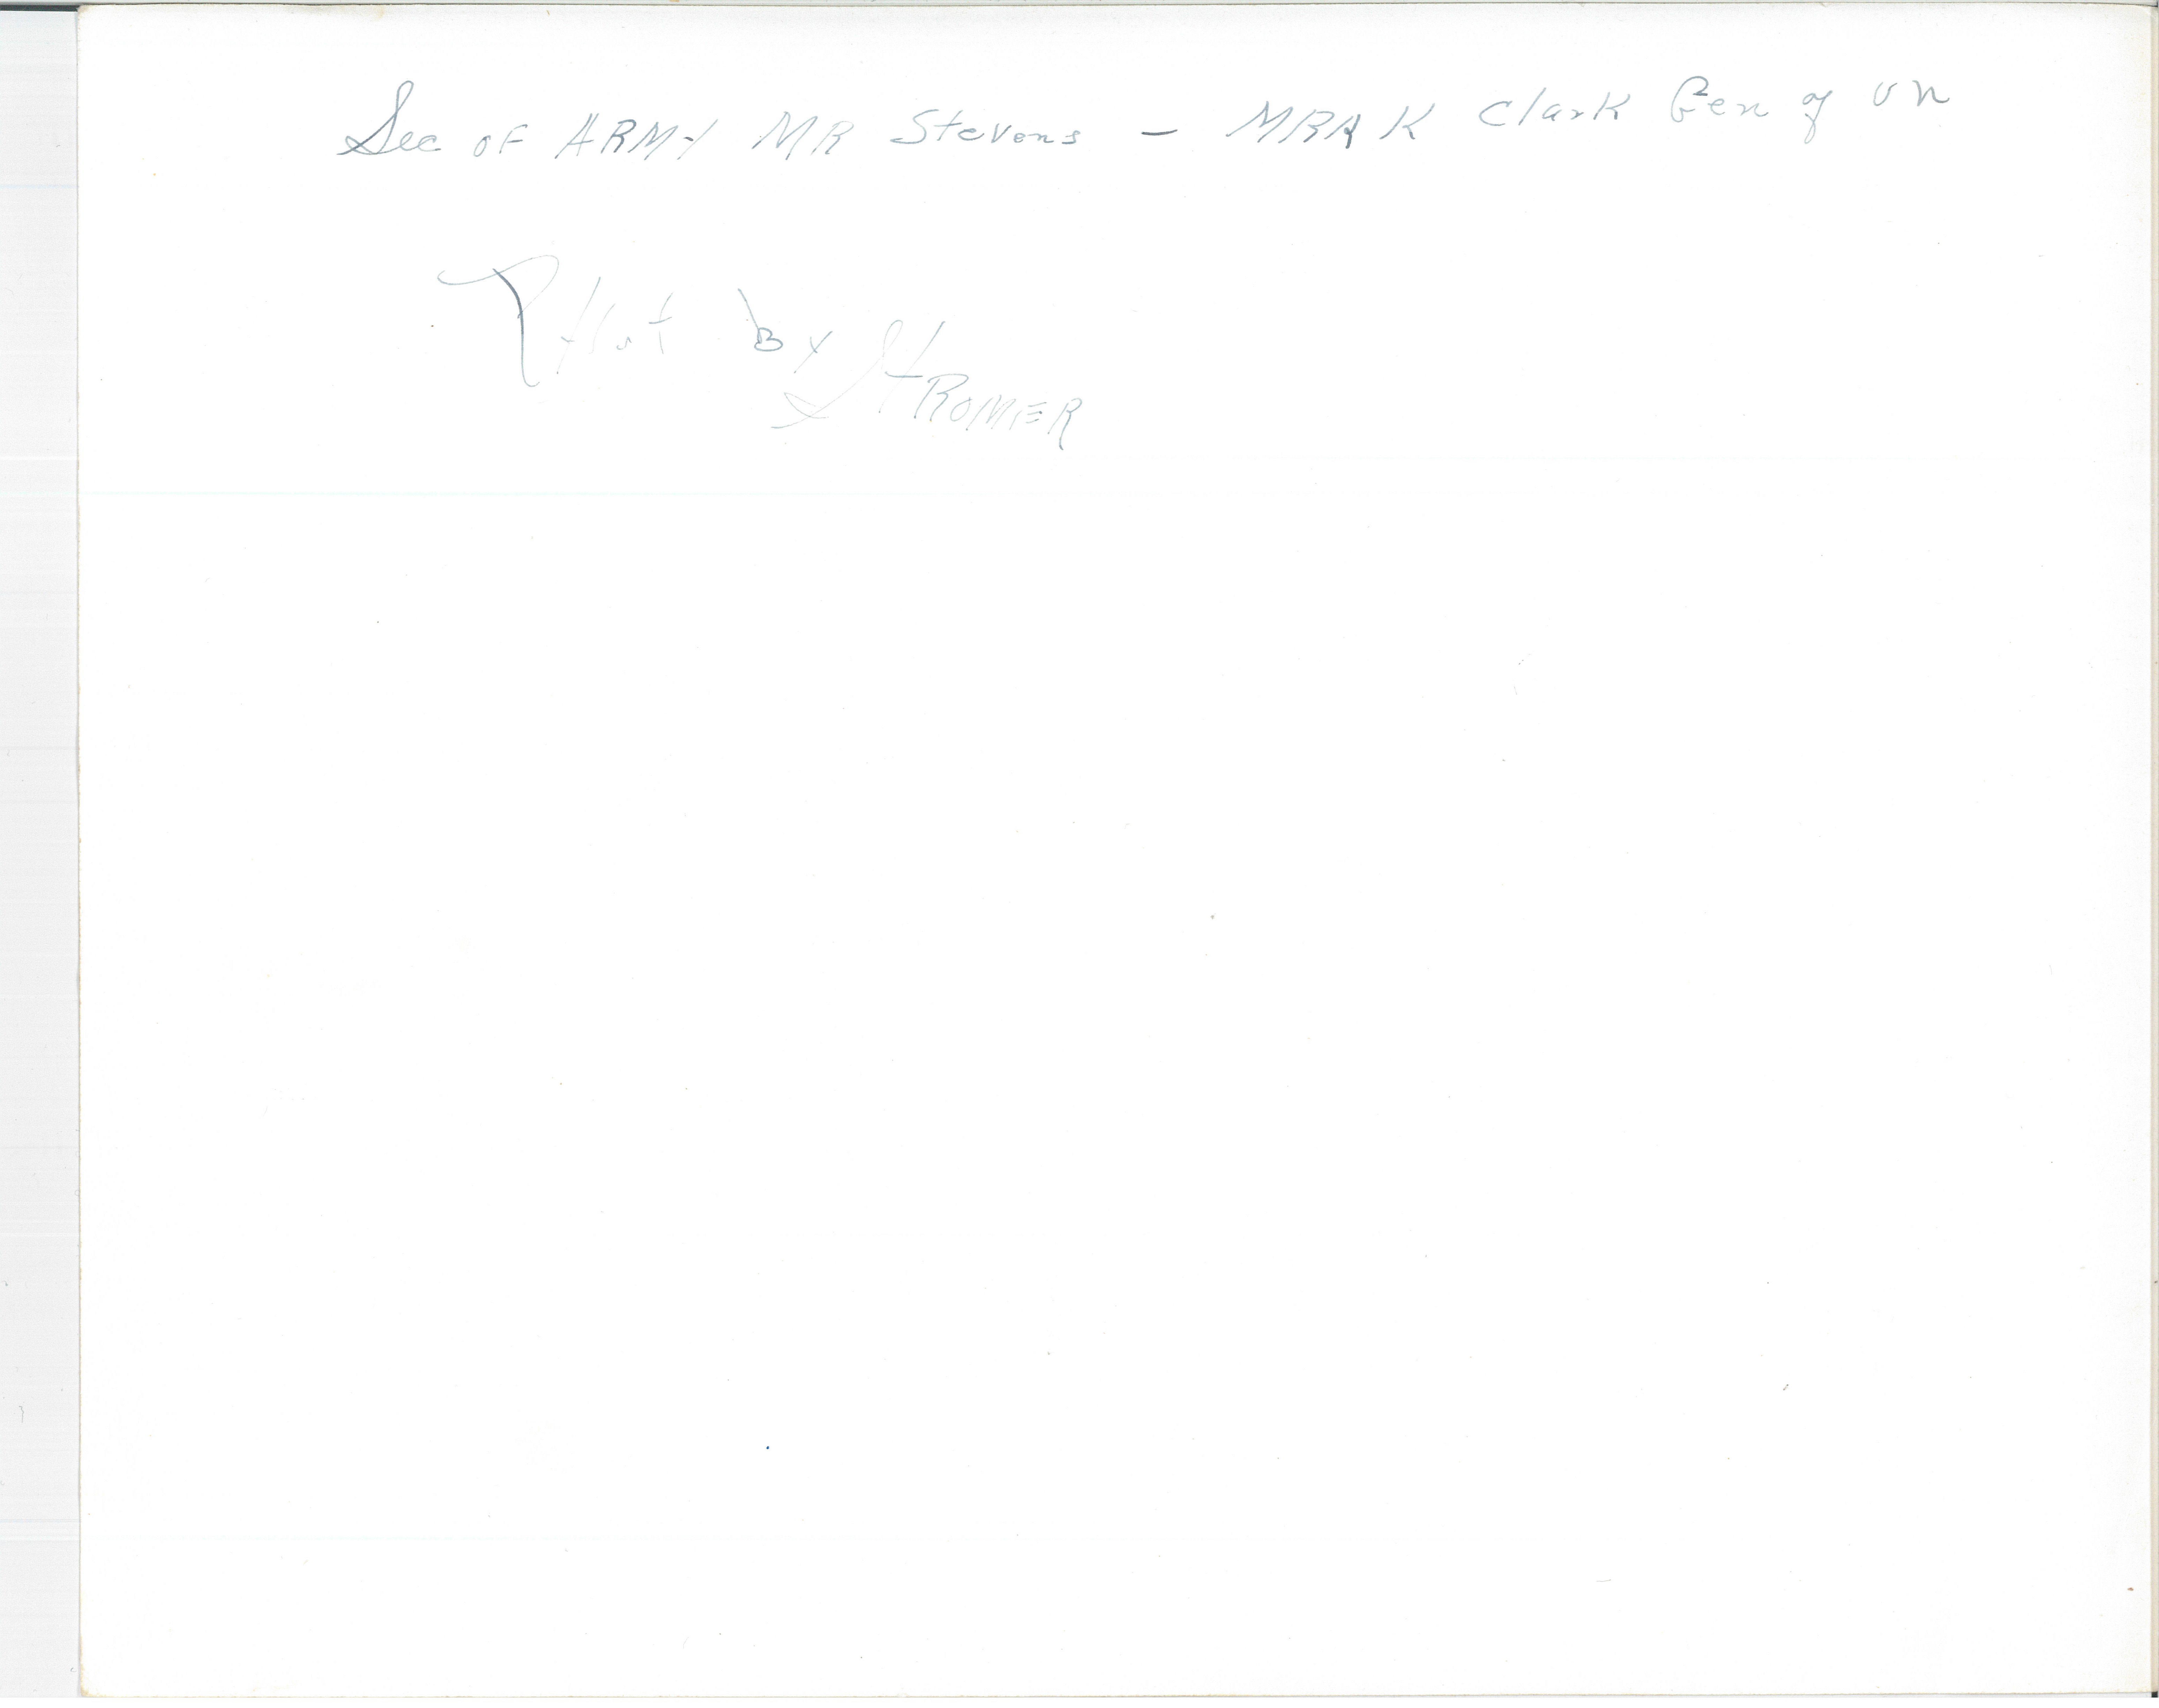 Sec OF ARMY MR Stevens - MARK Clark Gen of UN
Phot by
StROMER